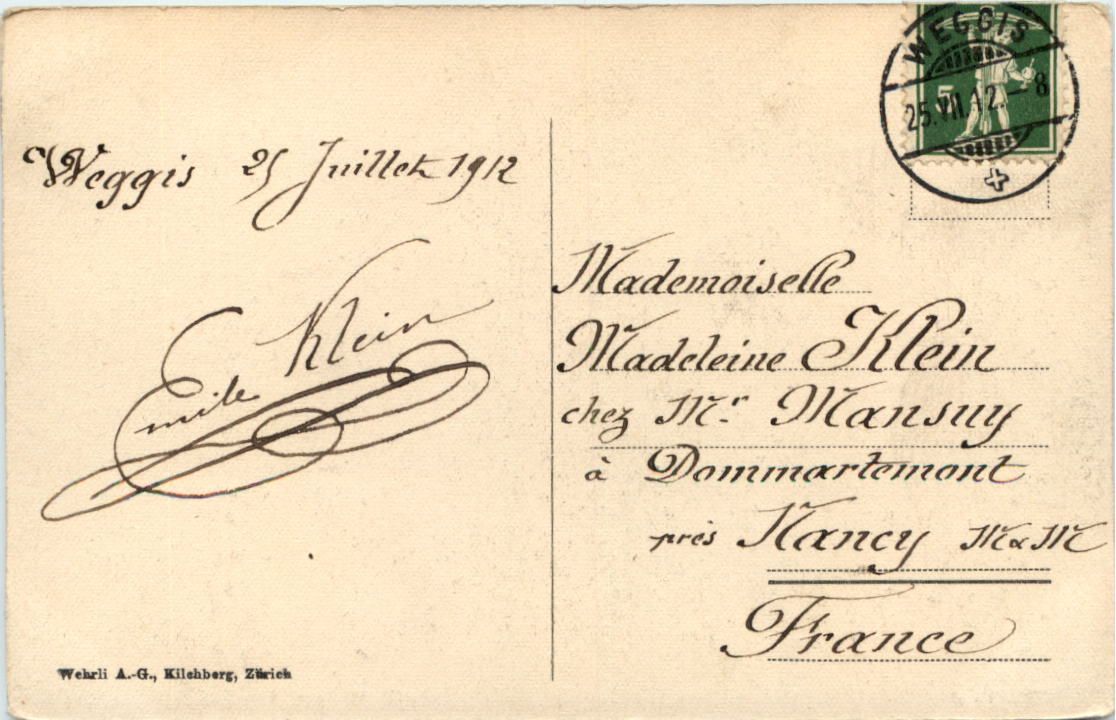 WEGGIS
5
25.VII.12.–8
Weggis 25 Juillet 1912
Emile Klein
Mademoiselle
Madeleine Klein
chez Mr. Mansuy
à Dommartemont
près Nancy M & M
France
Wehrli A.-G., Kilchberg, Zürich